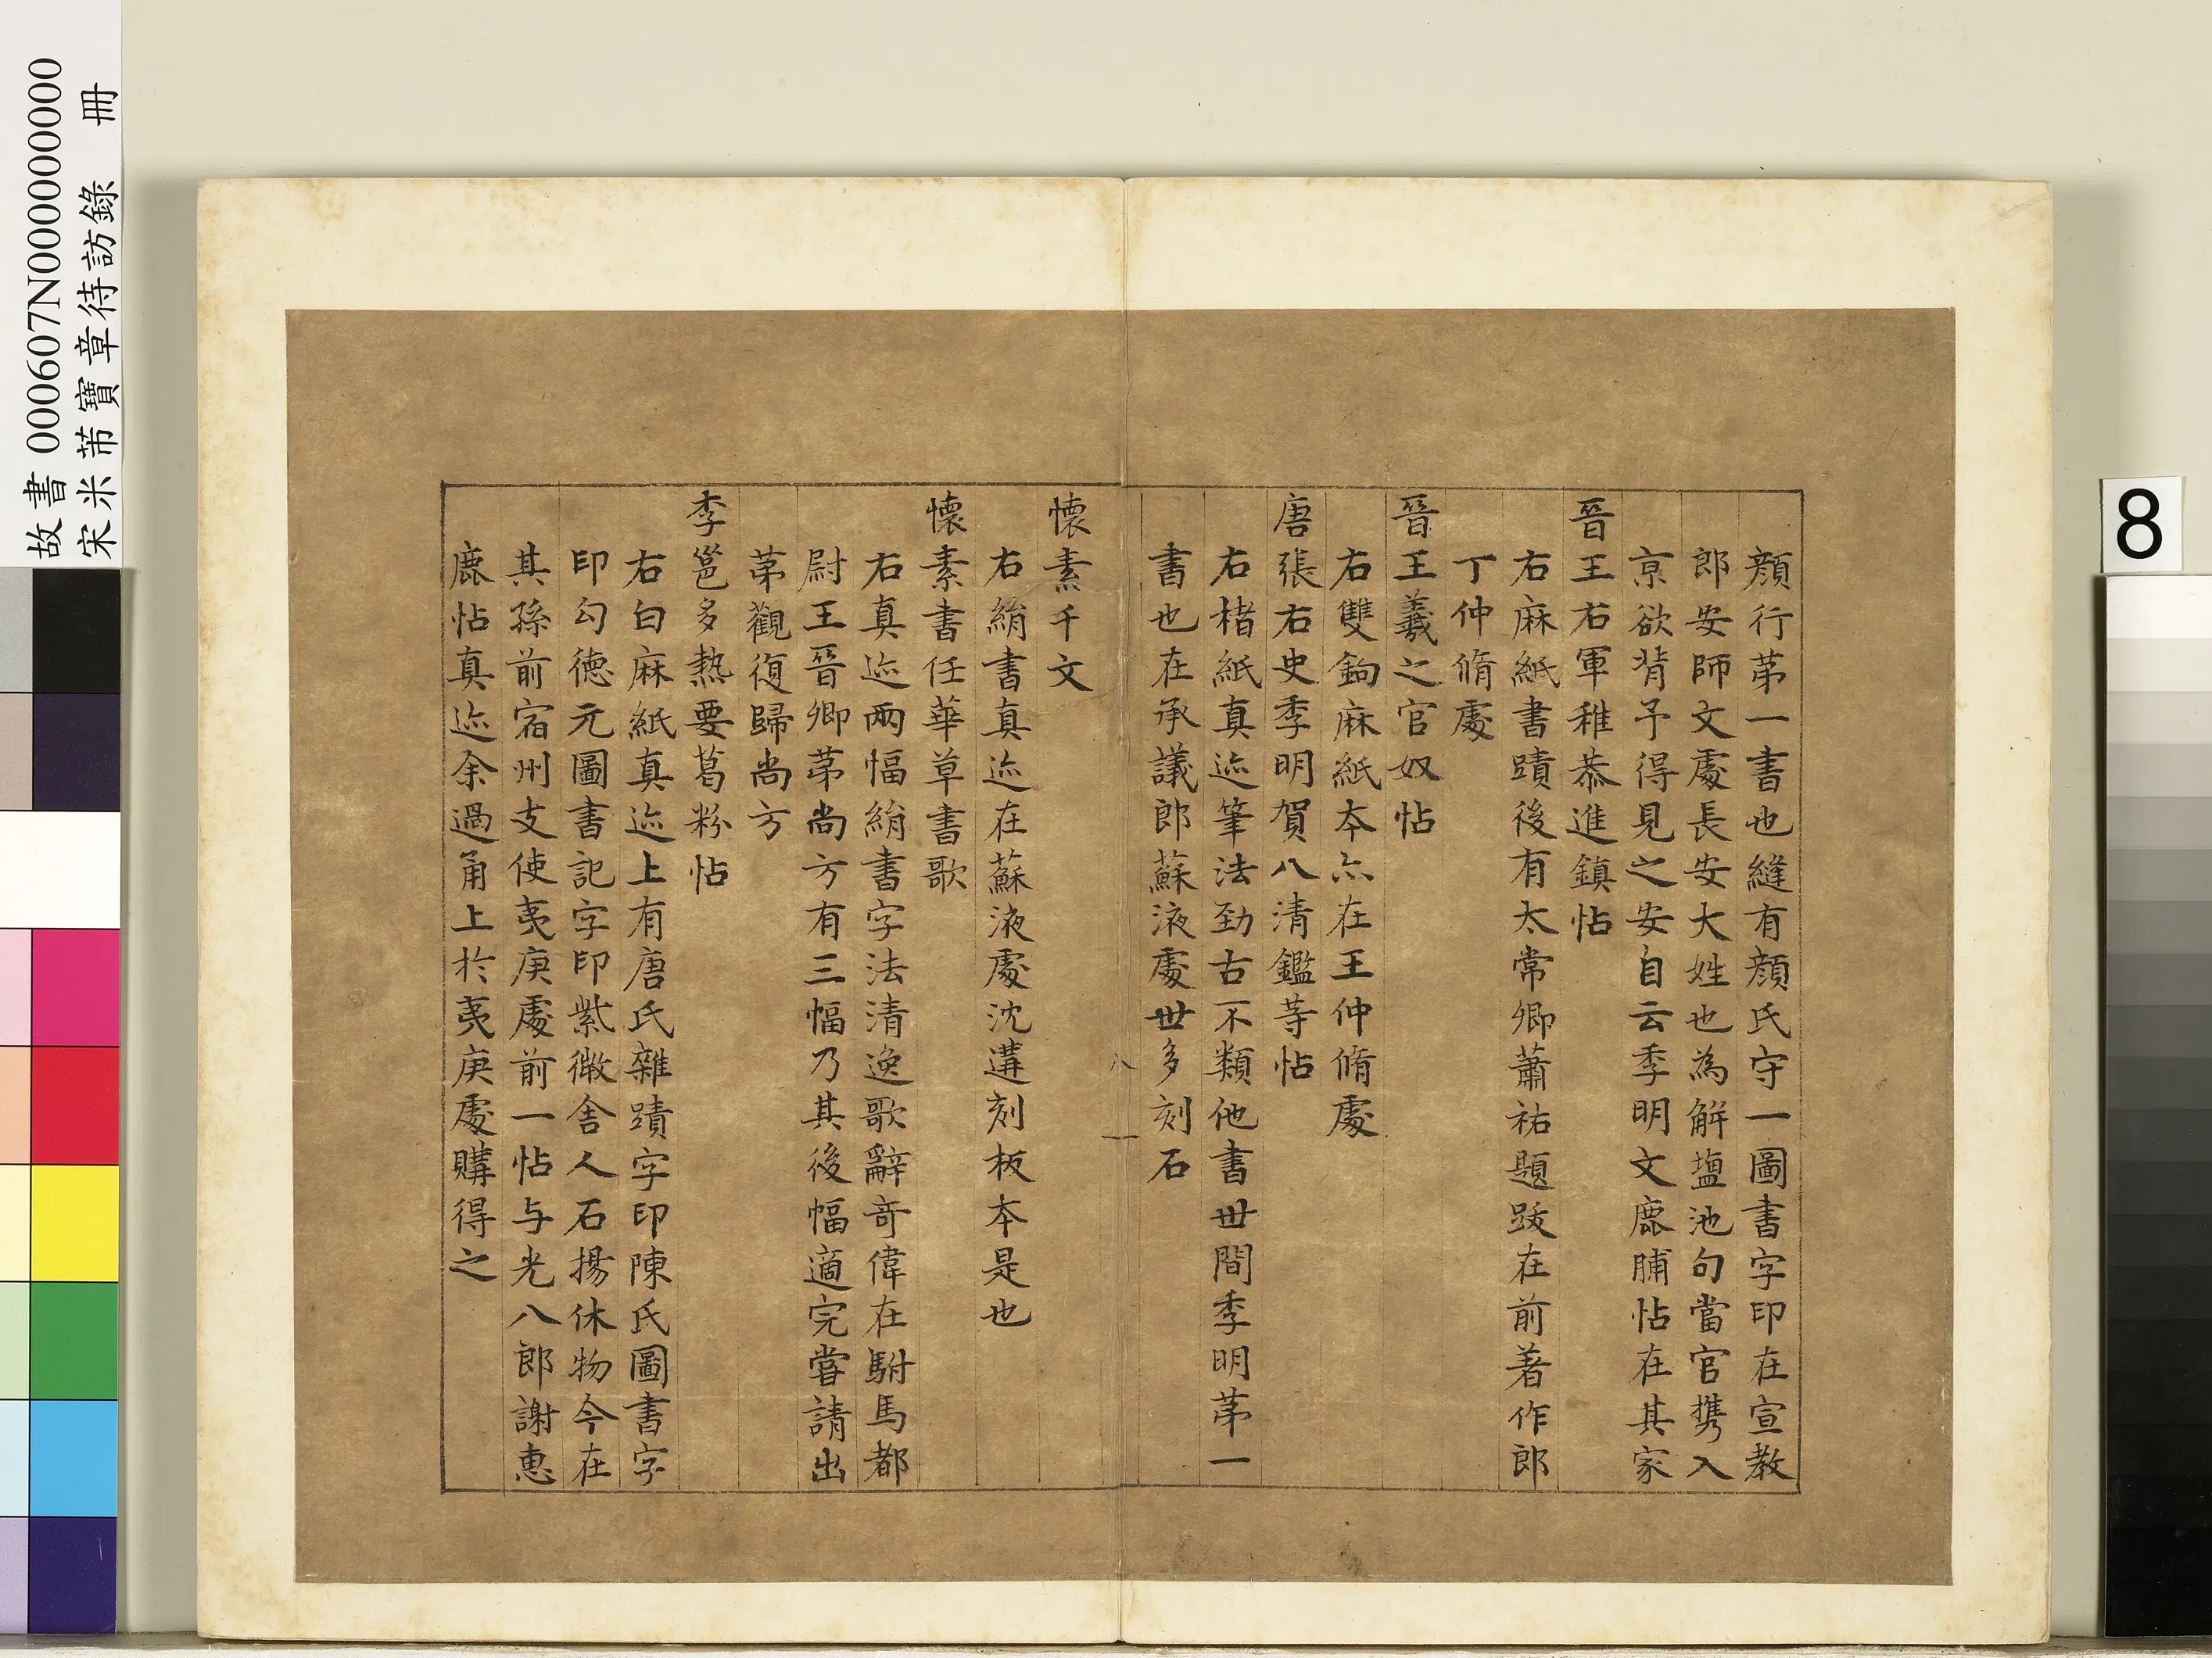 顔行苐一書也縫有顔氏守一圖書字印在宣教
郎安師文處長安大姓也為解塩池句當官携入
京欲背予得見之安自云季明文鹿脯帖在其家
晉王右軍稚恭進鎮帖
右麻紙書蹟後有太常卿蕭祐題跋在前著作郎
丁仲脩處
晉王羲之官奴帖
右雙鉤麻紙本亦在王仲脩處
唐張右史季明賀八清鑑等帖
右楮紙真迹筆法勁古不類他書世間季明苐一
書也在承議郎蘇液處世多刻石
八
懐素千文
右絹書真迹在蘇液處沈遘刻板本是也
懐素書任華草書歌
右真迹兩幅絹書字法清逸歌辭竒偉在駙馬都
尉王晉卿苐尚方有三幅乃其後幅適完嘗請出
苐觀復歸尚方
李邕多熱要葛粉帖
右白麻紙真迹上有唐氏雜蹟字印陳氏圖書字
印勾德元圖書記字印紫微舍人石揚休物今在
其孫前宿州支使夷庚處前一帖与光八郎謝惠
鹿帖真迹余過甬上於夷庚處購得之
故書 000607N000000000
宋米芾寶章待訪錄 冊
8